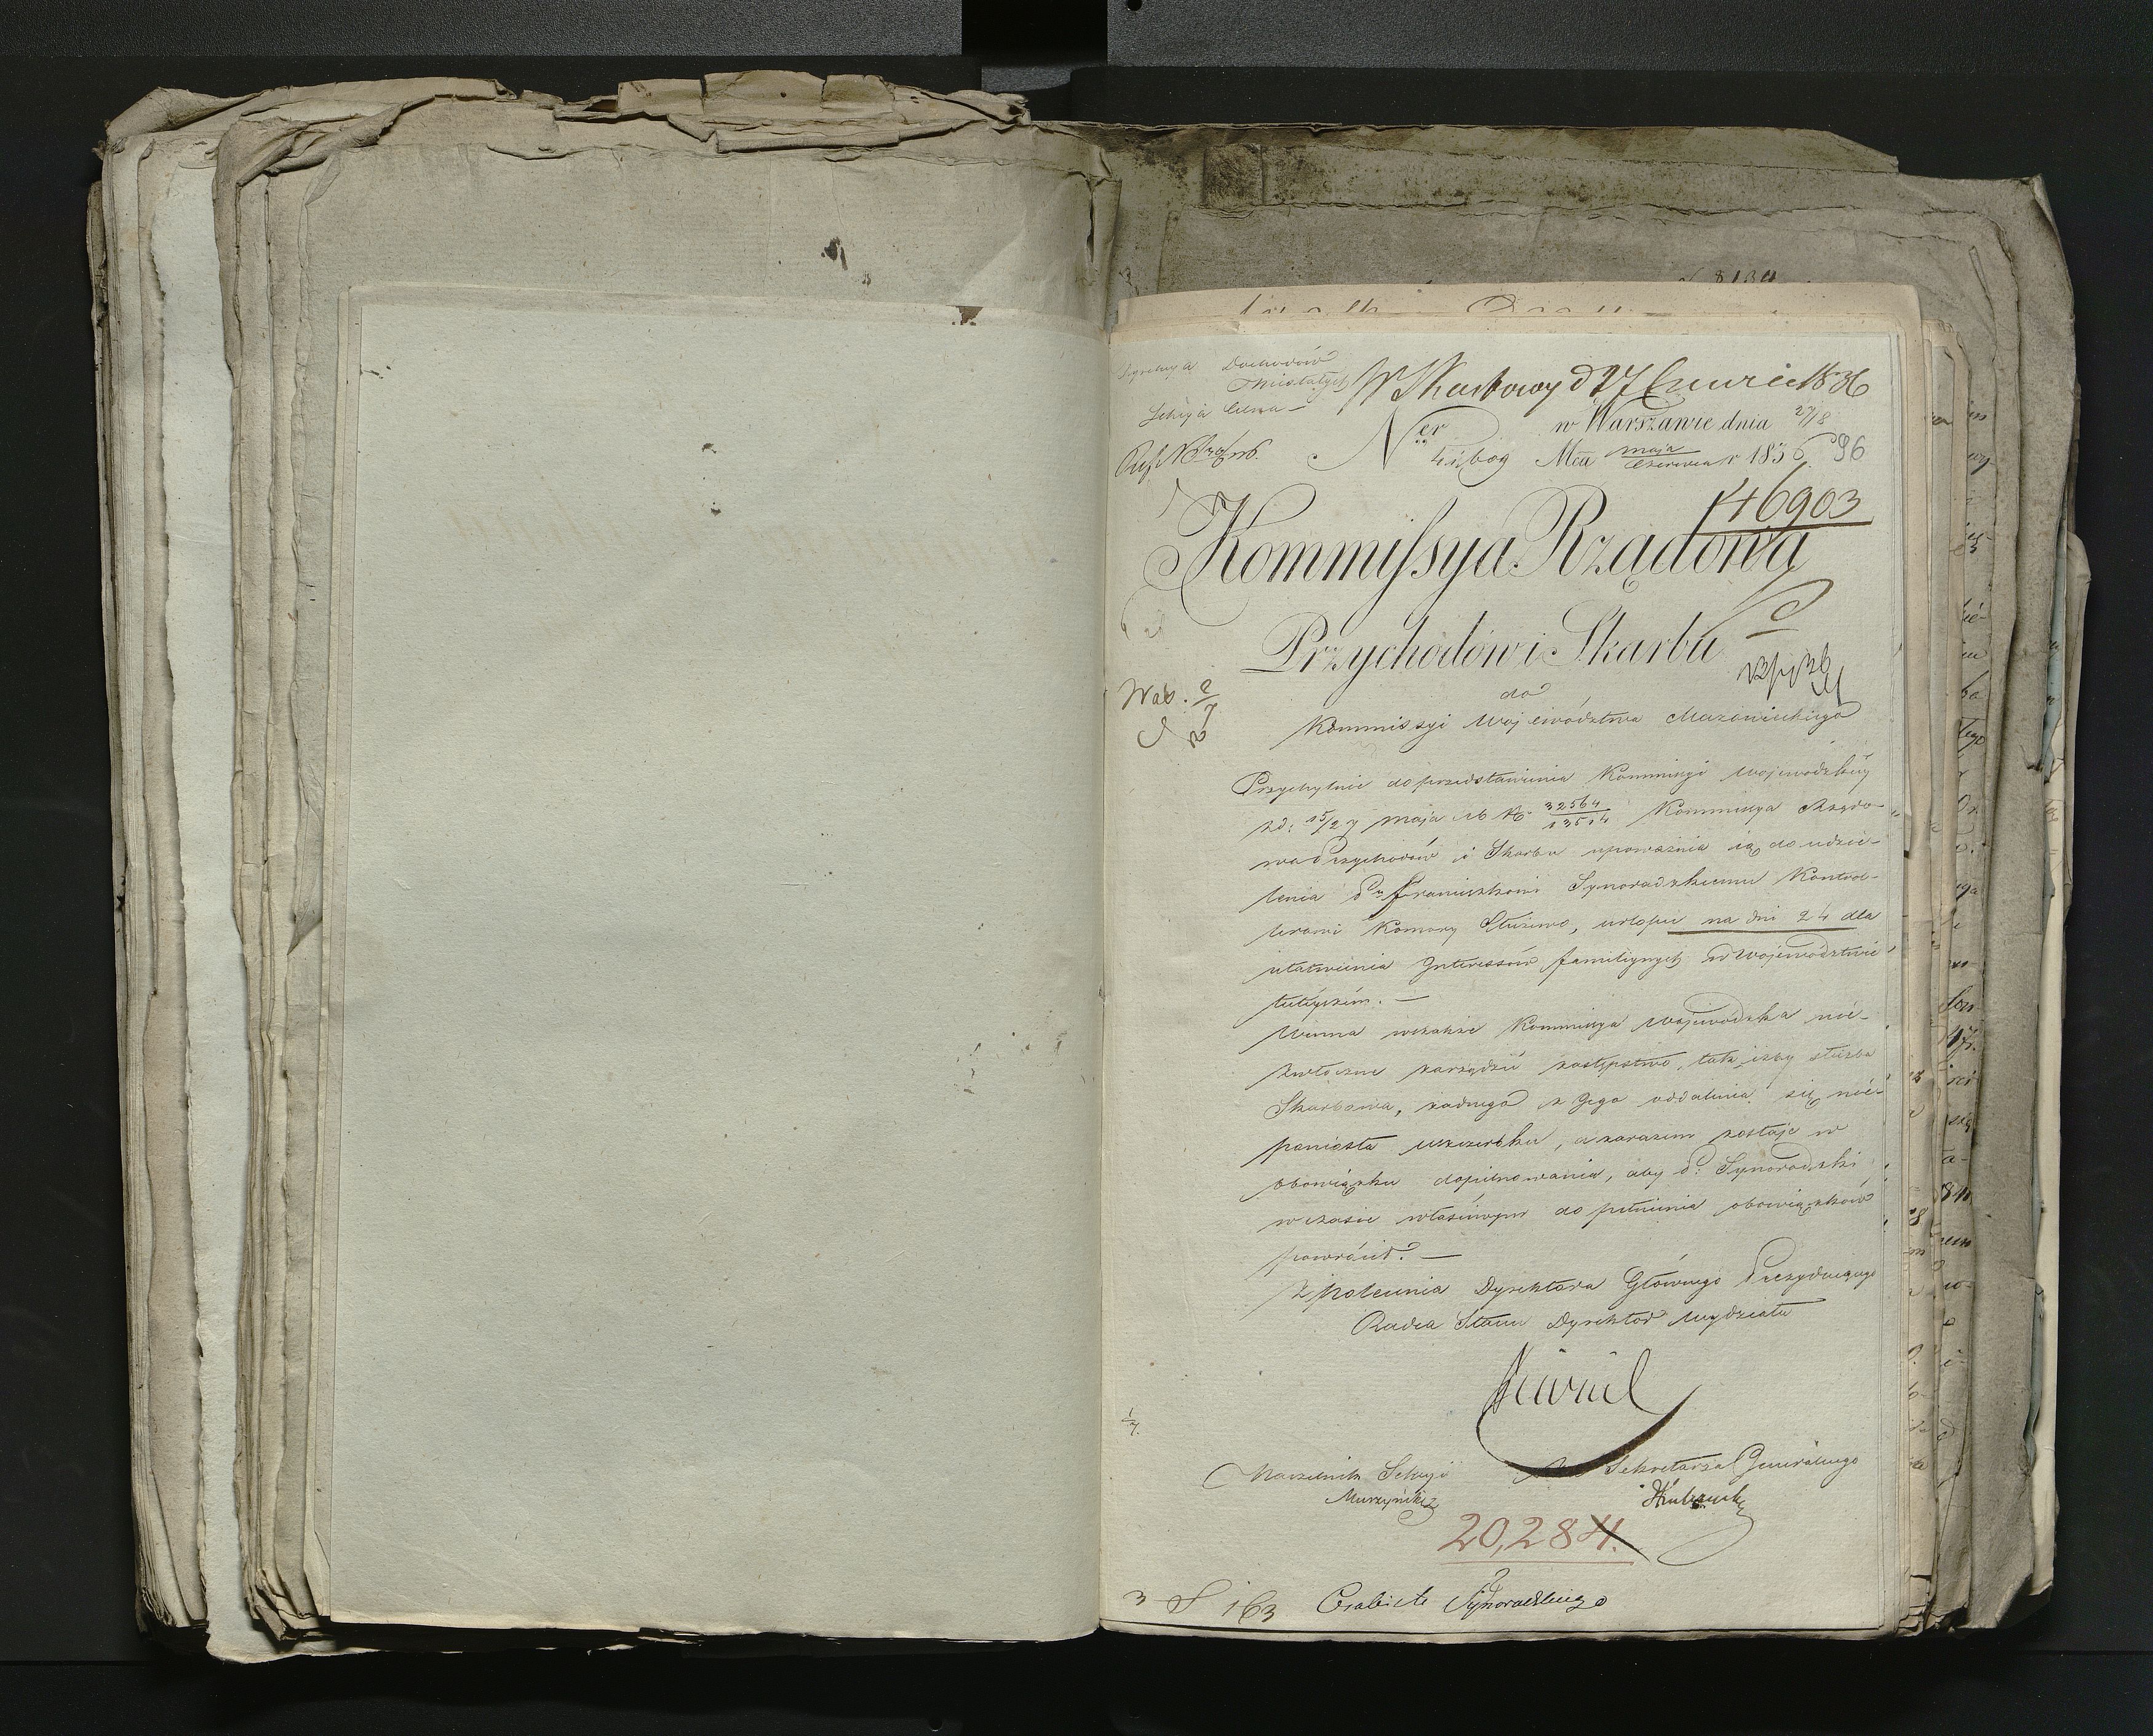 Dochodów
Niestałych
Sekcya Celna
W. Skarbowy d 27 Czerwca 1836
w Warszawie dnia 27/8
Ner
Mca maja/Czerwca r 1836
96
46903
Kommissya Rządowa
Przychodów i Skarbu
do
Kommissyi Województwa Mazowieckiego
Przychylnie do przedstawienia Kommissyi Wojewódzkiéj
z d: 15/27 maja rb N 32564/13514 Kommissya Rządo-
wa Przychodów i Skarbu upoważnia ią do udzie-
lenia Pu Franciszkowi Synoradzkiemu Kontrol-
lerowi Komory Służewo, urlopu na dni 24 dla
ułatwienia Interessów familijnych w Województwie
tutéyszém. —
Winna wszakże Kommissya Wojewódzka nie-
zwłocznie zarządzić zastępstwo, tak, iżby służba
Skarbowa, żadnego z Jego oddalenia się nie-
poniosła uszczerbku, a zarazem zostaje w
obowiązku dopilnowania, aby P: Synoradzki
w czasie właściwym do pełnienia obowiązków
powrócił. —
Z polecenia Dyrektora Głównego Prezydującego
Radca Stanu Dyrektor Wydziału
Naczelnik Sekcyi
Sekretarza Generalnego
Murzyński
20,284.
3 S 163 Osobiste Synoradzkiego